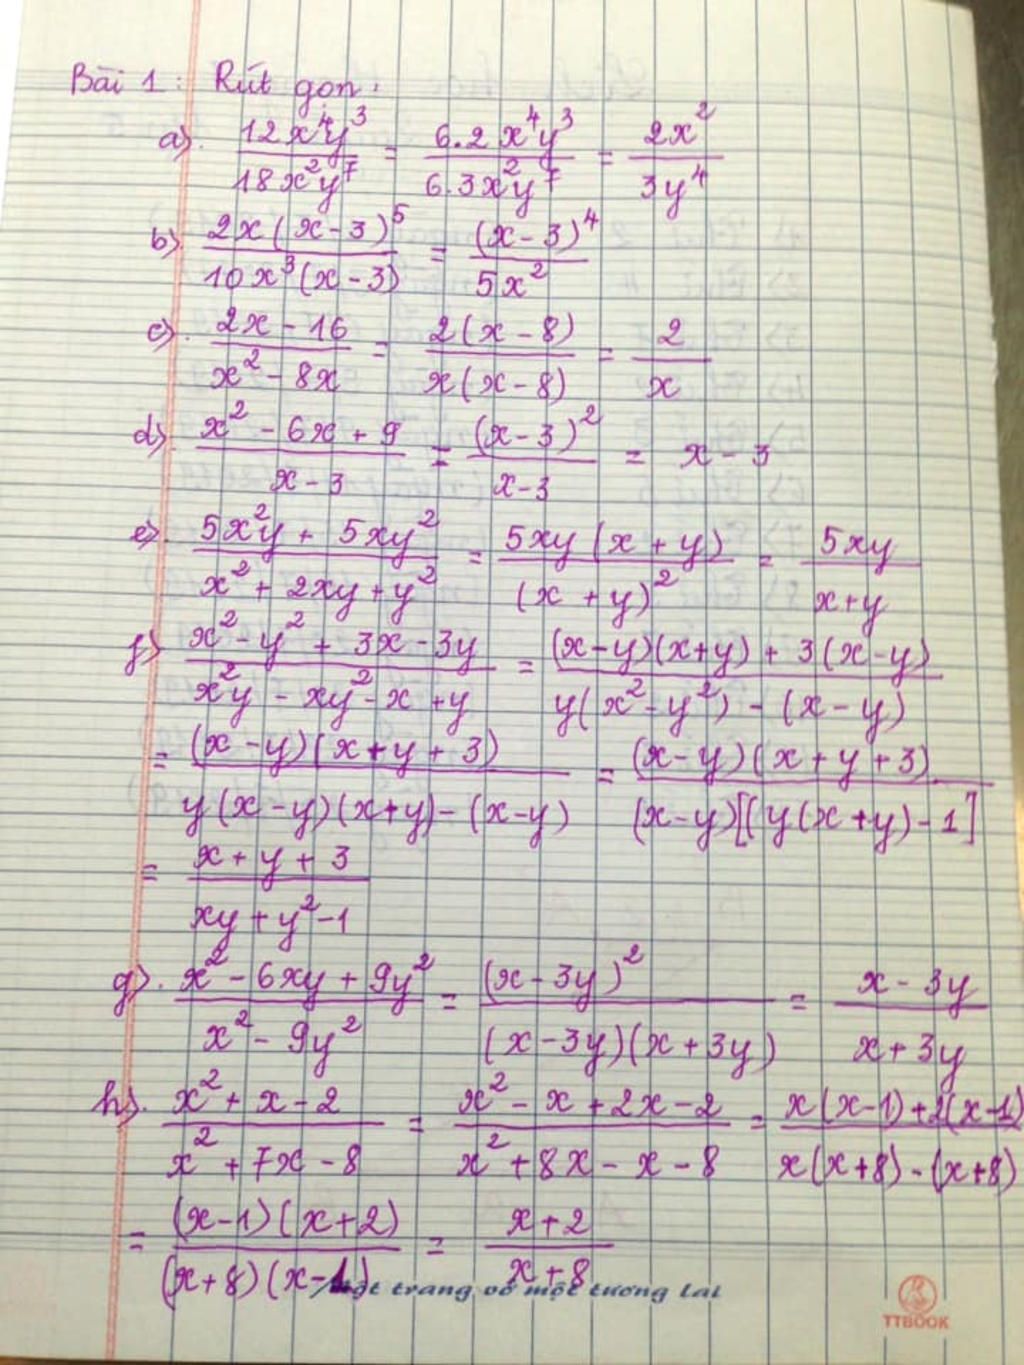 Bài 1: Rút gọn:
a). 12x⁴y³ / 18x²y⁷ = 6.2x⁴y³ / 6.3x²y⁷ = 2x² / 3y⁴
b). 2x(x-3)⁵ / 10x³(x-3) = (x-3)⁴ / 5x²
c). 2x - 16 / x² - 8x = 2(x-8) / x(x-8) = 2 / x
d). x² - 6x + 9 / x - 3 = (x-3)² / x-3 = x - 3
e). 5x²y + 5xy² / x² + 2xy + y² = 5xy(x+y) / (x+y)² = 5xy / x+y
f) x² - y² + 3x - 3y / x²y - xy² - x + y = (x-y)(x+y) + 3(x-y) / y(x² - y²) - (x-y)
= (x-y)(x+y+3) / y(x-y)(x+y) - (x-y) = (x-y)(x+y+3) / (x-y)[(y(x+y)-1]
= x+y+3 / xy+y²-1
g). x² - 6xy + 9y² / x² - 9y² = (x-3y)² / (x-3y)(x+3y) = x - 3y / x + 3y
h). x² + x - 2 / x² + 7x - 8 = x² - x + 2x - 2 / x² + 8x - x - 8 = x(x-1)+2(x-1) / x(x+8)-(x+8)
= (x-1)(x+2) / (x+8)(x-1) = x+2 / x+8
Một trang vở một tương lai
TTBOOK